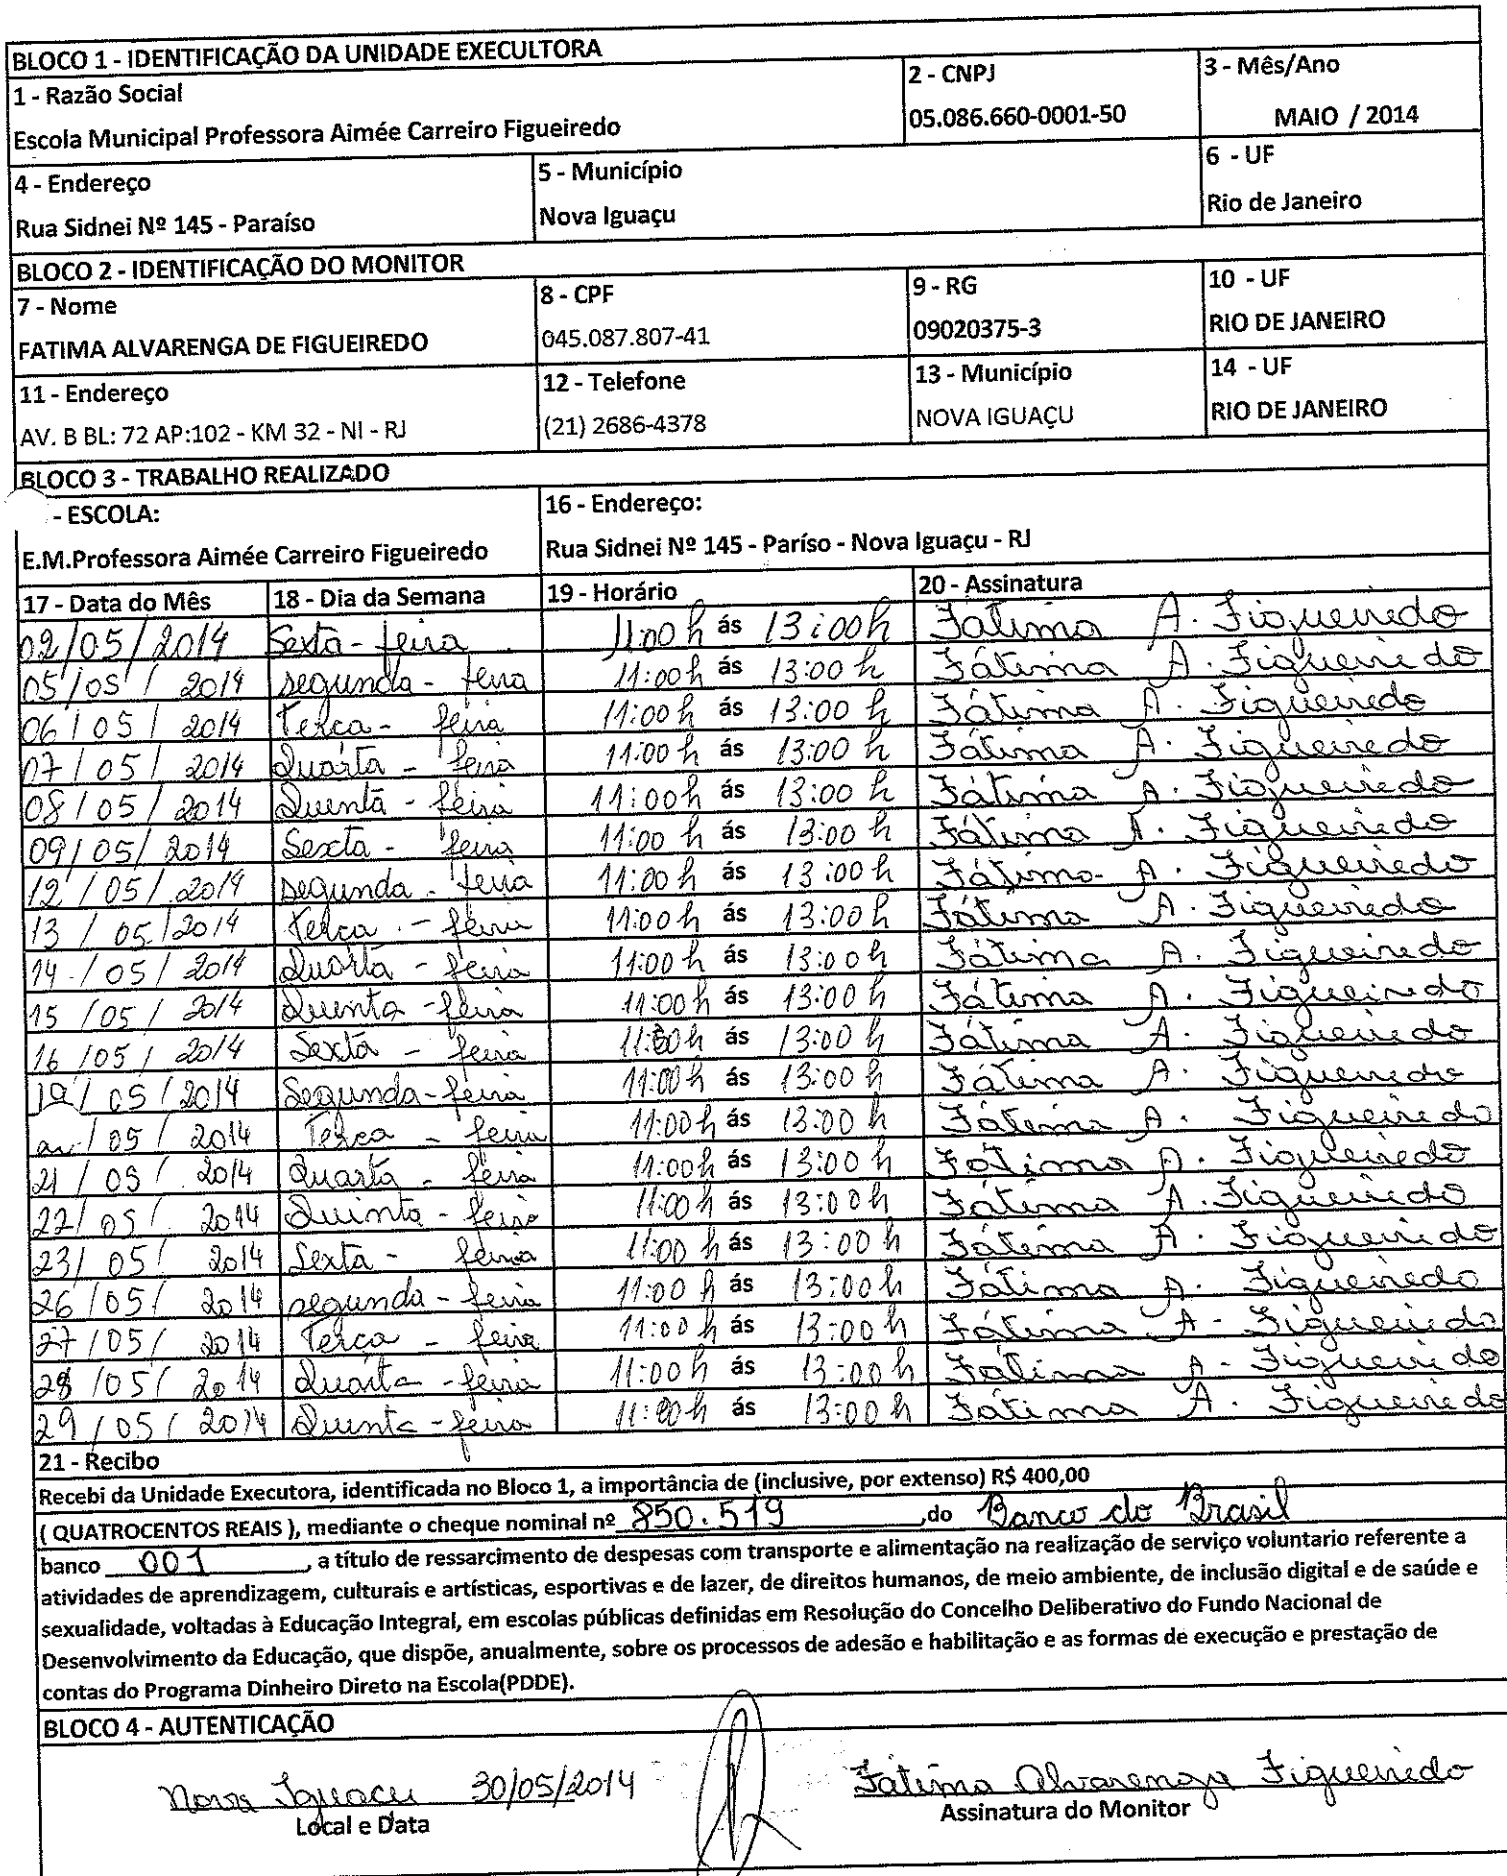 BLOCO 1 - IDENTIFICAÇÃO DA UNIDADE EXECULTORA
1 - Razão Social
Escola Municipal Professora Aimée Carreiro Figueiredo
2 - CNPJ
05.086.660-0001-50
3 - Mês/Ano
MAIO / 2014
4 - Endereço
Rua Sidnei Nº 145 - Paraíso
5 - Município
Nova Iguaçu
6 - UF
Rio de Janeiro
BLOCO 2 - IDENTIFICAÇÃO DO MONITOR
7 - Nome
FATIMA ALVARENGA DE FIGUEIREDO
8 - CPF
045.087.807-41
9 - RG
09020375-3
10 - UF
RIO DE JANEIRO
11 - Endereço
AV. B BL: 72 AP:102 - KM 32 - NI - RJ
12 - Telefone
(21) 2686-4378
13 - Município
NOVA IGUAÇU
14 - UF
RIO DE JANEIRO
BLOCO 3 - TRABALHO REALIZADO
- ESCOLA:
E.M.Professora Aimée Carreiro Figueiredo
16 - Endereço:
Rua Sidnei Nº 145 - Paríso - Nova Iguaçu - RJ
17 - Data do Mês 18 - Dia da Semana 19 - Horário 20 - Assinatura
02/05/2014 Sexta-feira 11:00 h ás 13:00h Fátima A. Figueiredo
05/05/2014 segunda-feira 11:00h ás 13:00 h Fátima A. Figueiredo
06/05/2014 Terça-feira 11:00 h ás 13:00 h Fátima A. Figueiredo
07/05/2014 Quarta-feira 11:00 h ás 13:00 h Fátima A. Figueiredo
08/05/2014 Quinta-feira 11:00h ás 13:00 h Fátima A. Figueiredo
09/05/2014 Sexta-feira 11:00 h ás 13:00 h Fátima A. Figueiredo
12/05/2014 segunda-feira 11:00 h ás 13:00 h Fátima A. Figueiredo
13/05/2014 Terça-feira 11:00 h ás 13:00 h Fátima A. Figueiredo
14/05/2014 Quarta-feira 11:00 h ás 13:00 h Fátima A. Figueiredo
15/05/2014 Quinta-feira 11:00 h ás 13:00 h Fátima A. Figueiredo
16/05/2014 Sexta-feira ás 13:00 h Fátima A. Figueiredo
19/05/2014 Segunda-feira 11:00 h ás 13:00 h Fátima A. Figueiredo
/05/2014 Terça-feira 11:00 h ás 13:00 h Fátima A. Figueiredo
21/05/2014 Quarta-feira 11:00h ás 13:00 h Fátima A. Figueiredo
22/05/2014 Quinta-feira 11:00 h ás 13:00 h Fátima A. Figueiredo
23/05/2014 Sexta-feira 11:00 h ás 13:00 h Fátima A. Figueiredo
26/05/2014 segunda-feira 11:00 h ás 13:00h Fátima A. Figueiredo
27/05/2014 Terça-feira 11:00 h ás 13:00 h Fátima A. Figueiredo
28/05/2014 Quarta-feira 11:00 h ás 13:00 h Fátima A. Figueiredo
29/05/2014 Quinta-feira ás 13:00 h Fátima A. Figueiredo
21 - Recibo
Recebi da Unidade Executora, identificada no Bloco 1, a importância de (inclusive, por extenso) R$ 400,00
( QUATROCENTOS REAIS ), mediante o cheque nominal nº 850.519 ,do Banco do Brasil
banco 001 , a título de ressarcimento de despesas com transporte e alimentação na realização de serviço voluntario referente a
atividades de aprendizagem, culturais e artísticas, esportivas e de lazer, de direitos humanos, de meio ambiente, de inclusão digital e de saúde e
sexualidade, voltadas à Educação Integral, em escolas públicas definidas em Resolução do Concelho Deliberativo do Fundo Nacional de
Desenvolvimento da Educação, que dispõe, anualmente, sobre os processos de adesão e habilitação e as formas de execução e prestação de
contas do Programa Dinheiro Direto na Escola(PDDE).
BLOCO 4 - AUTENTICAÇÃO
Nova Iguaçu 30/05/2014 Fátima Alvarenga Figueiredo
Local e Data Assinatura do Monitor